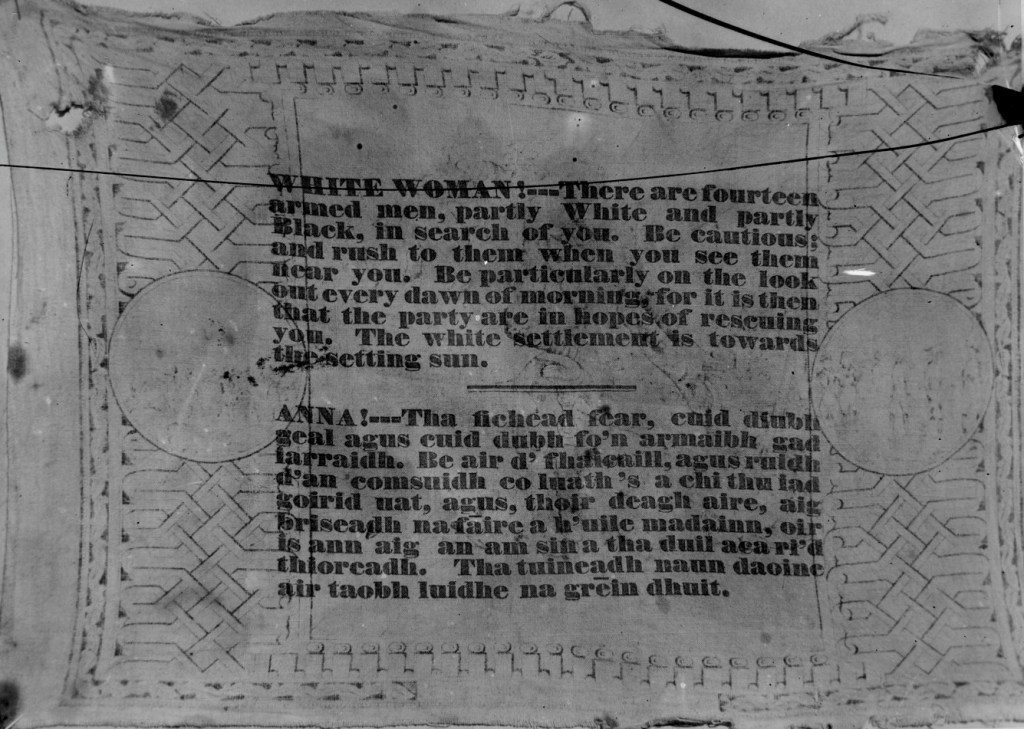 WHITE WOMAN!---There are fourteen
armed men, partly White and partly
Black, in search of you. Be cautious;
and rush to them when you see them
near you. Be particularly on the look
out every dawn of morning, for it is then
that the party are in hopes of rescuing
you. The white settlement is towards
the setting sun.
ANNA!---Tha fichead fear, cuid diubh
geal agus cuid dubh fo'n armaibh gad
iarraidh. Be air d' fhaicaill, agus ruidh
d'an comsuidh co luath 's a chi thu iad
goirid uat, agus, thoir deagh aire, aig
briseadh na faire a h'uile madainn, oir
is ann aig an am sin a tha duil aca ri'd
thiorcadh. Tha tuineadh naun daoine
air taobh luidhe na grēin dhuit.